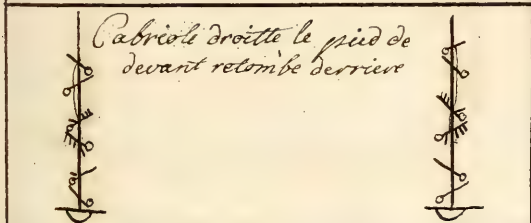 Cabriole droitte le pied de
devant retombe derriere